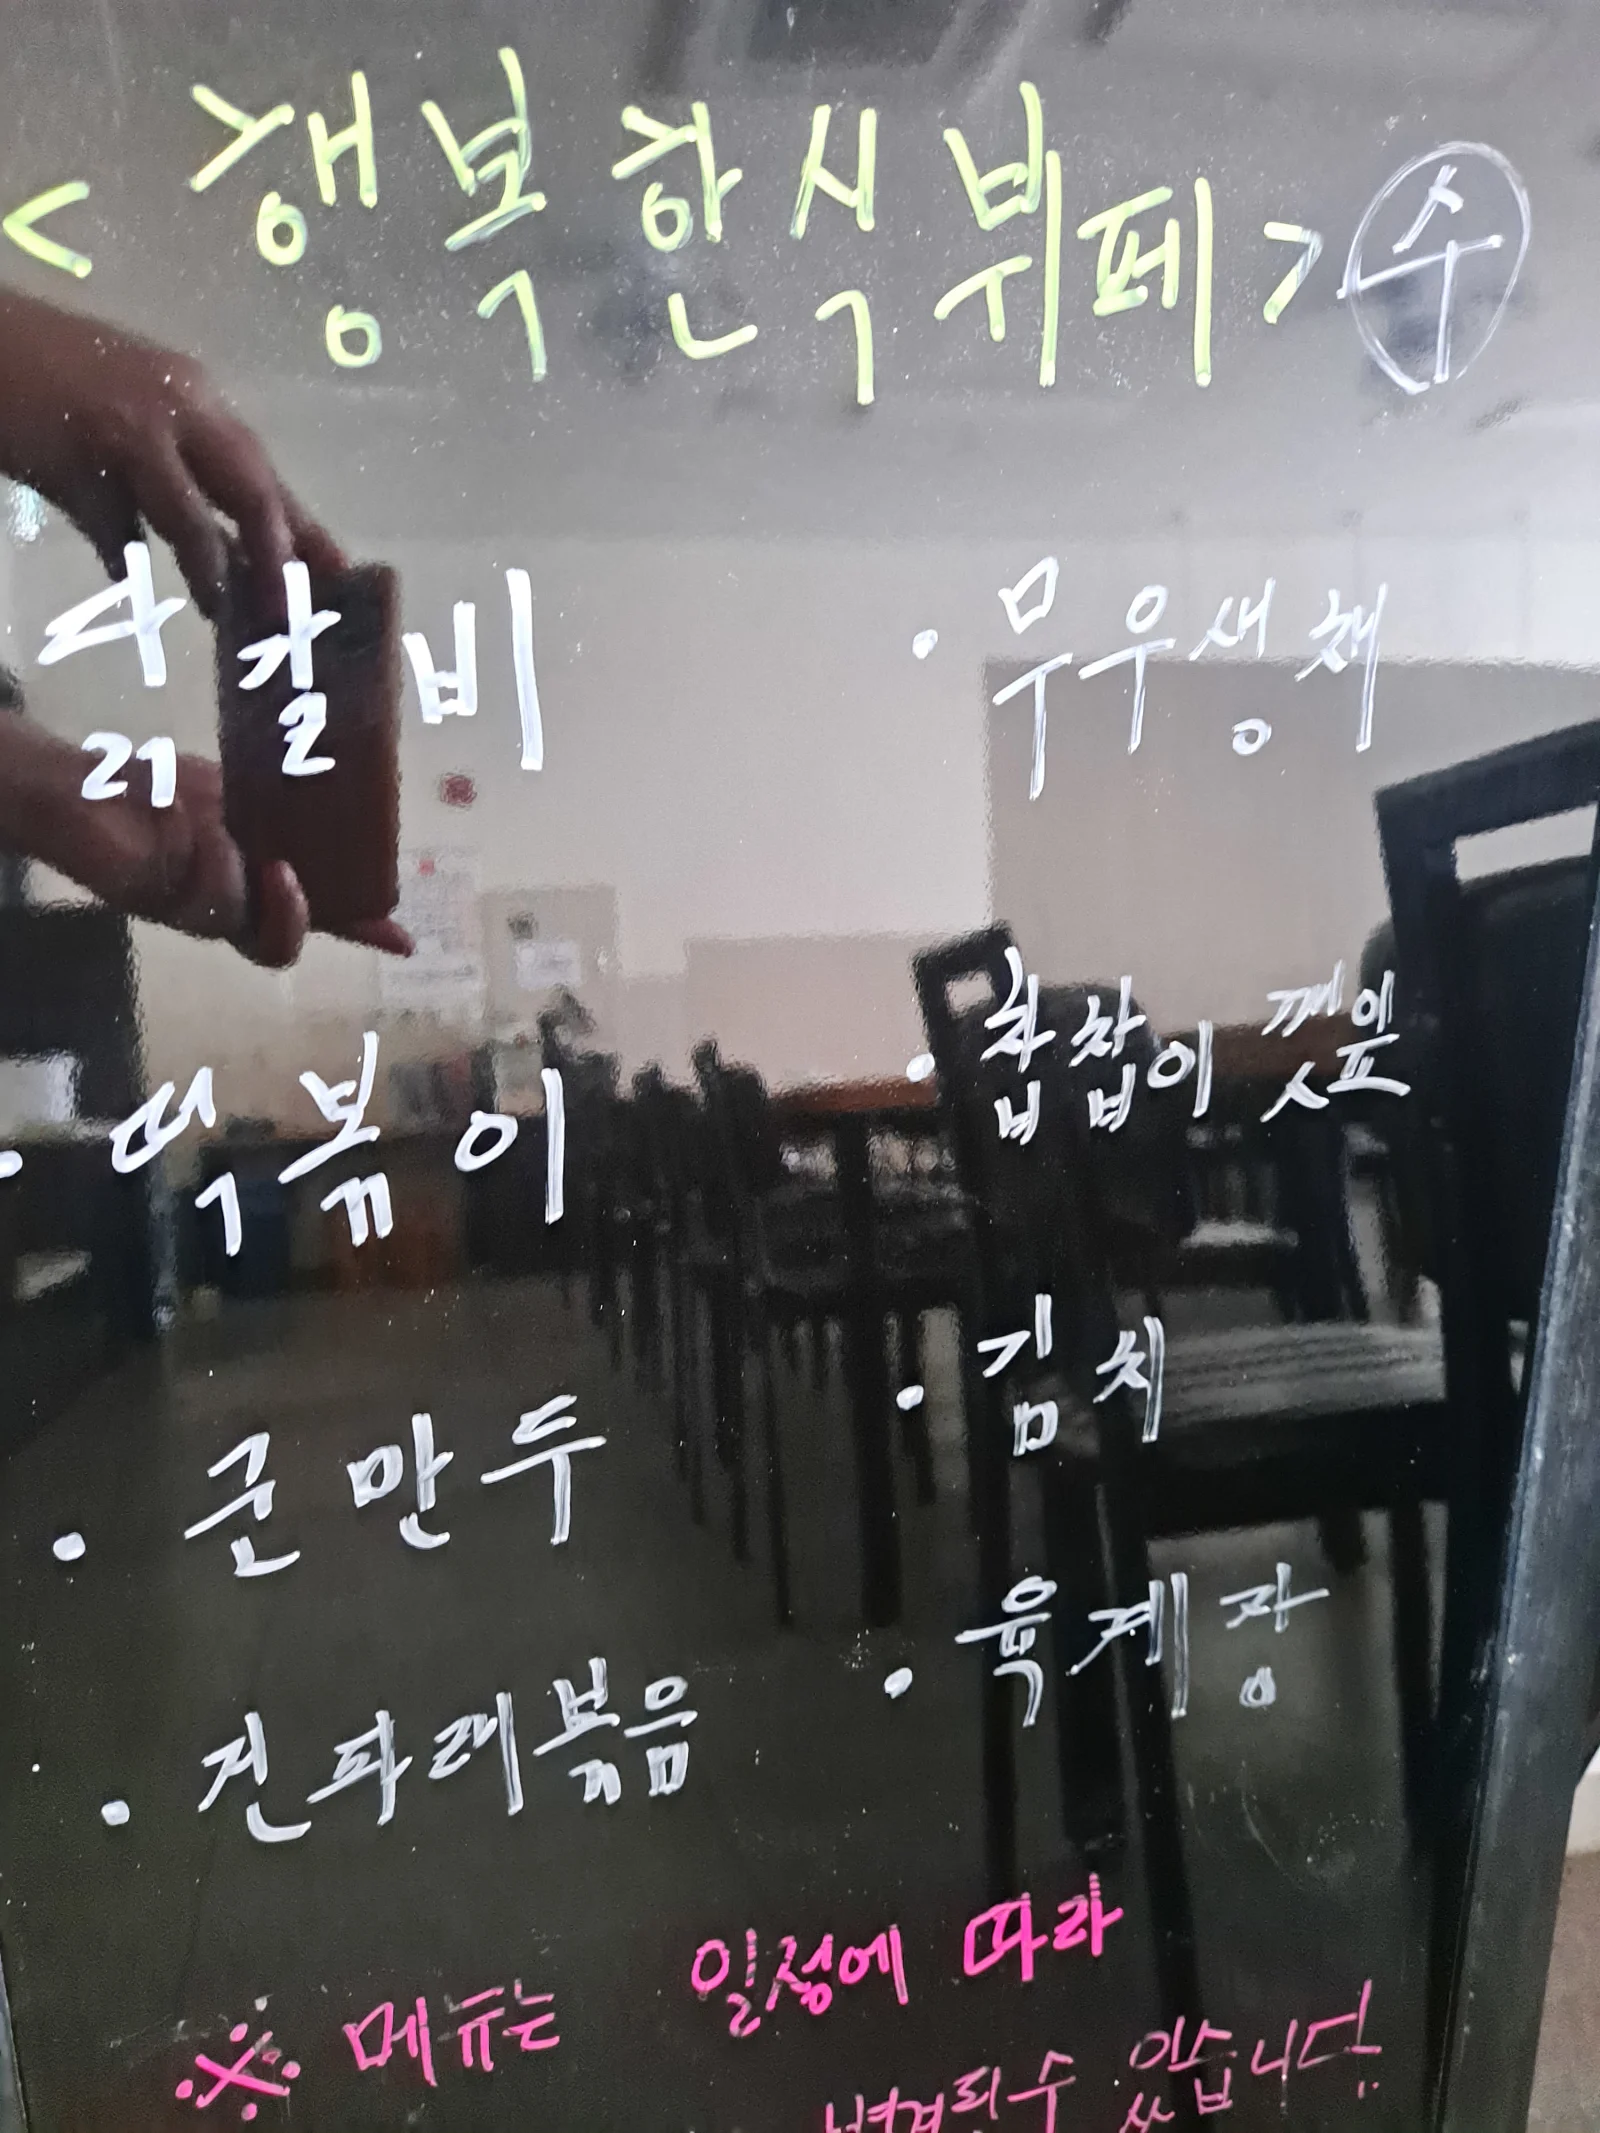 <행복한식뷔페> 수
닭갈비
· 무우생채
· 떡볶이
· 찹찹이 깻잎
· 군만두
· 김치
· 건파래볶음
· 육계장
※ 메뉴는 일정에 따라
변경되수 있습니다.